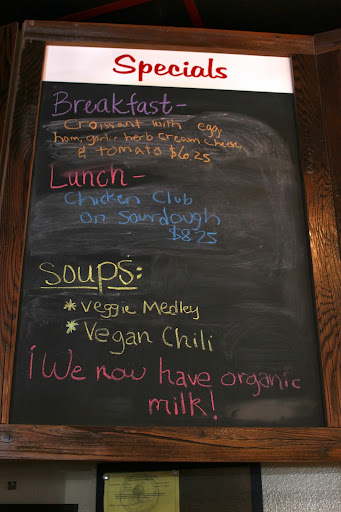 Specials
Breakfast-
Croissant with egg,
ham, garlic herb cream cheese,
& tomato $6.25
Lunch-
Chicken Club
on Sourdough
$8.25
SOUPS:
* Veggie Medley
* Vegan Chili
¡We now have organic
milk!